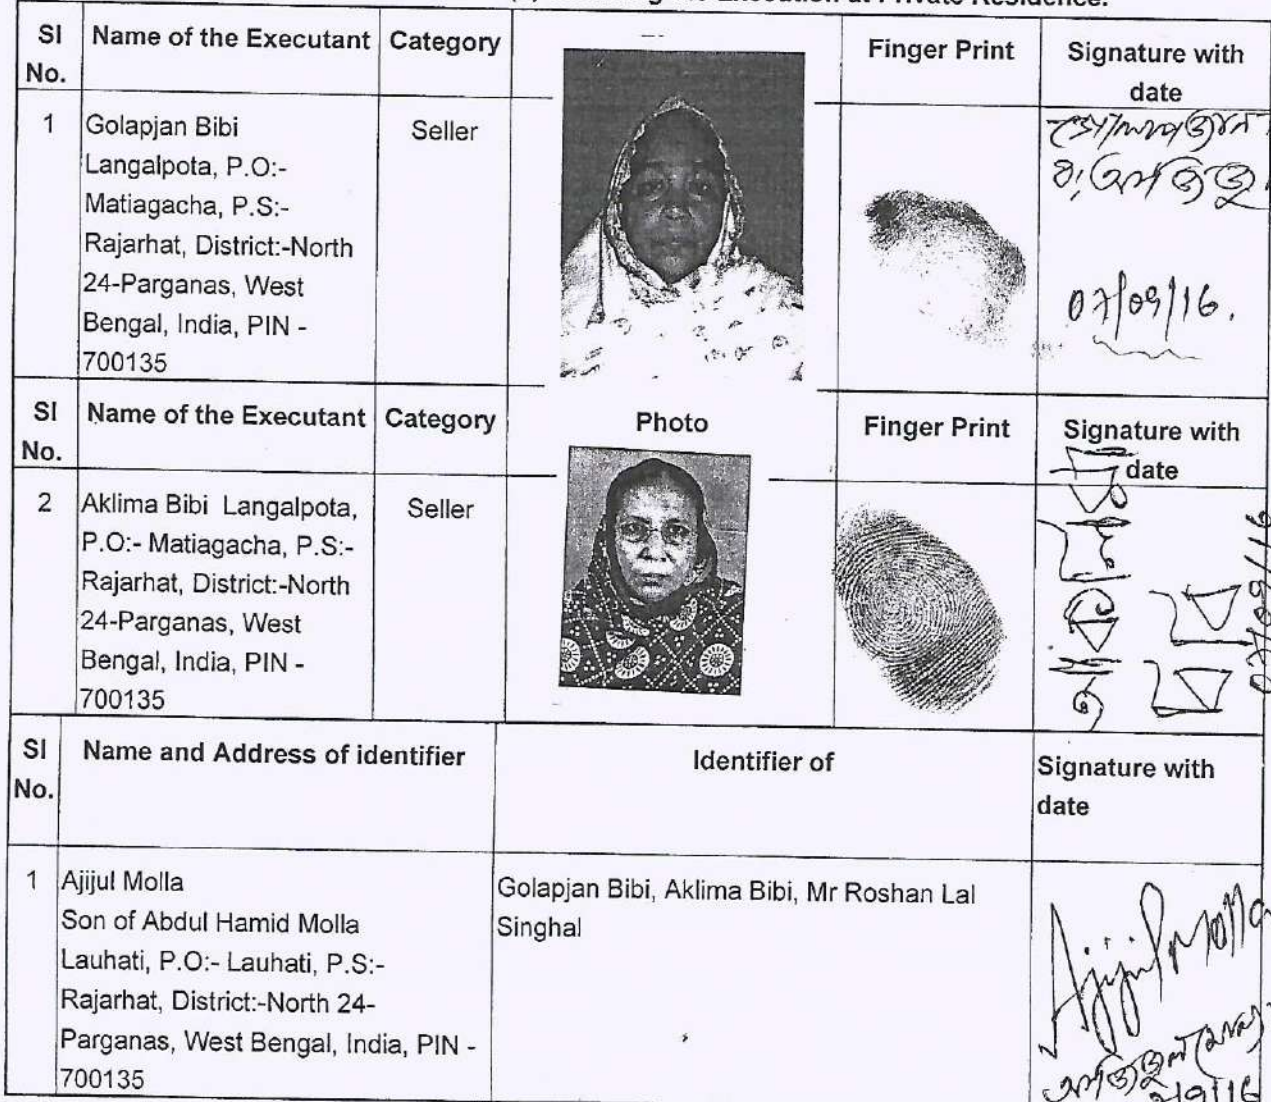 Execution at Private Residence.
Sl No.
Name of the Executant
Category
Finger Print
Signature with date
1
Golapjan Bibi
Langalpota, P.O:-
Matiagacha, P.S:-
Rajarhat, District:-North
24-Parganas, West
Bengal, India, PIN -
700135
Seller
07/09/16.
Sl No.
Name of the Executant
Category
Photo
Finger Print
Signature with date
2
Aklima Bibi Langalpota,
P.O:- Matiagacha, P.S:-
Rajarhat, District:-North
24-Parganas, West
Bengal, India, PIN -
700135
Seller
07/09/16
Sl No.
Name and Address of identifier
Identifier of
Signature with
date
1
Ajijul Molla
Son of Abdul Hamid Molla
Lauhati, P.O:- Lauhati, P.S:-
Rajarhat, District:-North 24-
Parganas, West Bengal, India, PIN -
700135
Golapjan Bibi, Aklima Bibi, Mr Roshan Lal
Singhal
Ajijul Molla